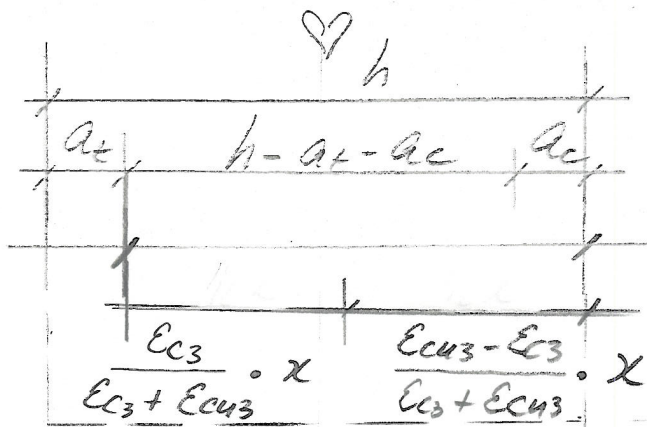 h
at h - at - ac ac
εc3/(εc3 + εcu3) · x (εcu3 - εc3)/(εc3 + εcu3) · x